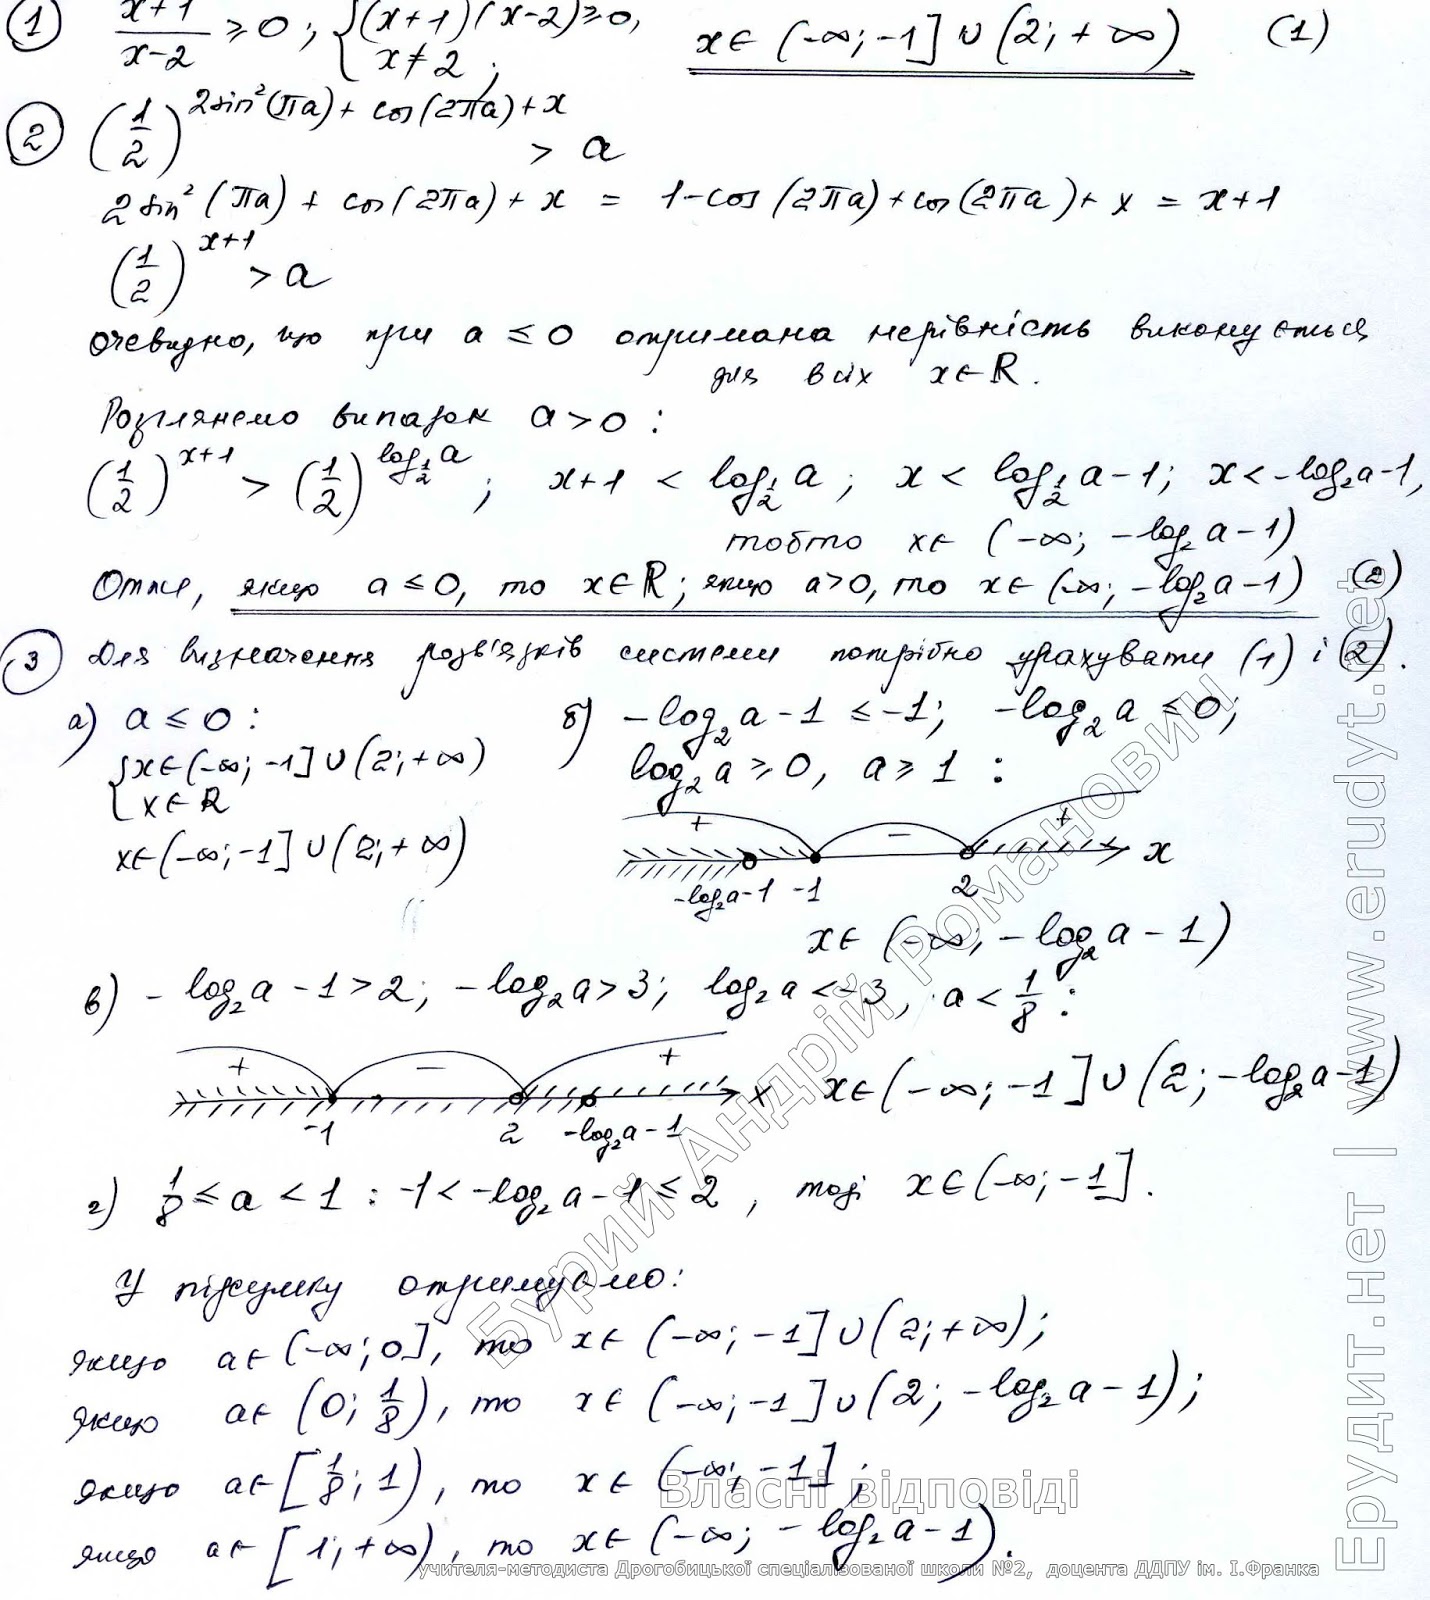 ① x+1/x-2 ≥ 0; { (x+1)(x-2) ≥ 0, x ≠ 2; x ∈ (-∞; -1] ∪ (2; +∞) (1)
② (1/2)^(2sin²(πa) + cos(2πa) + x) > a
2sin²(πa) + cos(2πa) + x = 1 - cos(2πa) + cos(2πa) + x = x+1
(1/2)^(x+1) > a
Очевидно, що при a ≤ 0 отримана нерівність виконується
для всіх x ∈ R.
Розглянемо випадок a > 0 :
(1/2)^(x+1) > (1/2)^(log_(1/2) a) ; x+1 < log_(1/2) a ; x < log_(1/2) a - 1; x < -log₂a - 1,
тобто x ∈ (-∞; -log₂ a - 1)
Отже, якщо a ≤ 0, то x ∈ R; якщо a > 0, то x ∈ (-∞; -log₂ a - 1) (2)
③ Для визначення розв'язків системи потрібно урахувати (1) і (2).
а) a ≤ 0 :
{ x ∈ (-∞; -1] ∪ (2; +∞)
x ∈ R
x ∈ (-∞; -1] ∪ (2; +∞)
б) -log₂ a - 1 ≤ -1; -log₂ a ≤ 0;
log₂ a ≥ 0, a ≥ 1 :
+ - + x
-log₂a - 1 -1 2
x ∈ (-∞; -log₂ a - 1)
в) -log₂ a - 1 > 2; -log₂ a > 3; log₂ a < -3, a < 1/8 :
+ - + x
-1 2 -log₂a - 1
x ∈ (-∞; -1] ∪ (2; -log₂ a - 1)
г) 1/8 ≤ a < 1 : -1 < -log₂ a - 1 ≤ 2, тоді x ∈ (-∞; -1].
У підсумку отримуємо:
якщо a ∈ (-∞; 0], то x ∈ (-∞; -1] ∪ (2; +∞);
якщо a ∈ (0; 1/8), то x ∈ (-∞; -1] ∪ (2; -log₂ a - 1);
якщо a ∈ [1/8; 1), то x ∈ (-∞; -1];
якщо a ∈ [1; +∞), то x ∈ (-∞; -log₂ a - 1).
Бурий Андрій Романович
Власні відповіді
учителя-методиста Дрогобицької спеціалізованої школи №2, доцента ДДПУ ім. І.Франка
Ерудит.нет | www.erudyt.net